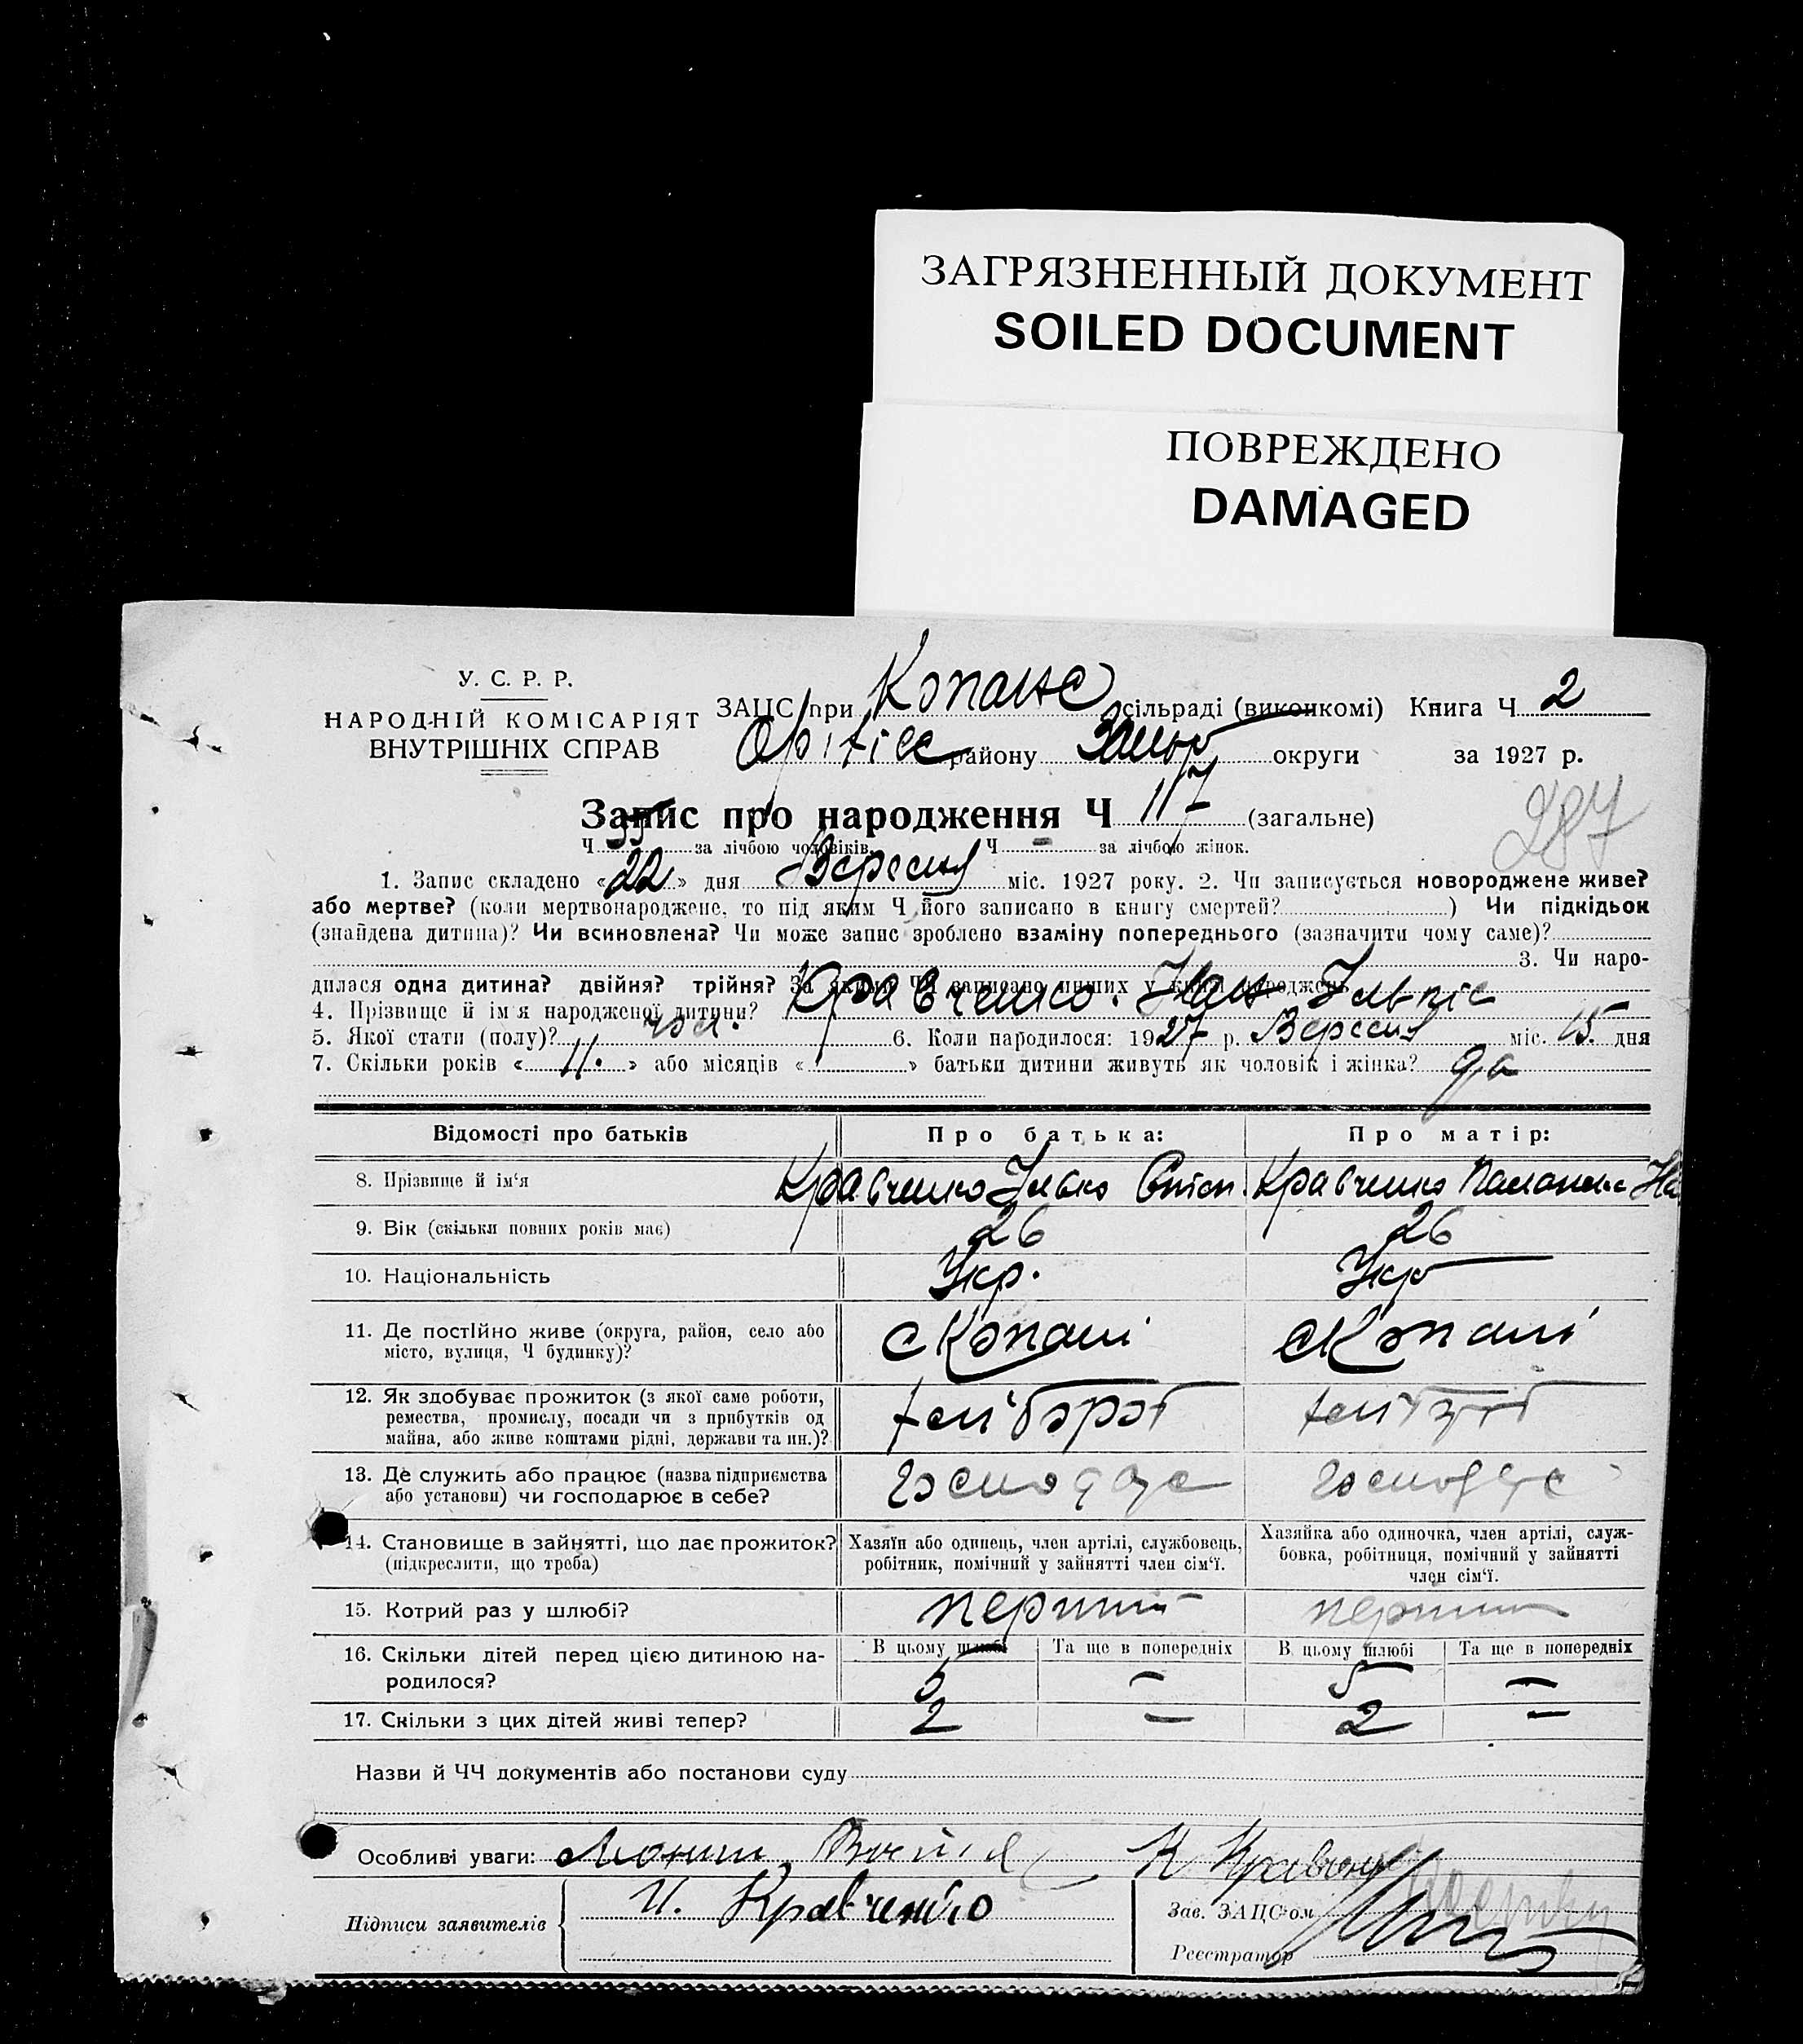 ЗАГРЯЗНЕННЫЙ ДОКУМЕНТ
SOILED DOCUMENT
ПОВРЕЖДЕНО
DAMAGED
У. С. Р. Р.
НАРОДНІЙ КОМІСАРІЯТ
ВНУТРІШНІХ СПРАВ
ЗАЦС при Копанс сільраді (виконкомі) Книга Ч 2
Оріхів району Запор округи за 1927 р.
Запис про народження Ч 117 (загальне)
287
Ч 55 за лічбою чоловіків Ч - за лічбою жінок.
1. Запис складено «22» дня Вересня міс. 1927 року. 2. Чи записується новороджене живе?
або мертве? (коли мертвонароджене, то під яким Ч його записано в книгу смертей? ) Чи підкідьок
(знайдена дитина)? Чи всиновлена? Чи може запис зроблено взаміну попереднього (зазначити чому саме)?
3. Чи наро-
дилася одна дитина? двійня? трійня? За якими ЧЧ записано инших у книзі народжень
4. Прізвище й ім'я народженої дитини? Кравченко Іван Ількіс
5. Якої стати (полу)? чол. 6. Коли народилося: 1927 р. Вересня міс. 15 дня
7. Скільки років « 11. » або місяців « » батьки дитини живуть як чоловік і жінка? да
Відомості про батьків Про батька: Про матір:
8. Прізвище й ім'я Кравченко Ілько Кравченко
9. Вік (скільки повних років має) 26 26
10. Національність Укр. Укр
11. Де постійно живе (округа, район, село або С Копані С Копані
місто, вулиця, Ч будинку)?
12. Як здобуває прожиток (з якої саме роботи,
ремества, промислу, посади чи з прибутків од
майна, або живе коштами рідні, держави та ин.)?
13. Де служить або працює (назва підприємства господарює господарює
або установи) чи господарює в себе?
14. Становище в зайнятті, що дає прожиток? Хазяїн або одинець, член артілі, службовець, Хазяйка або одиночка, член артілі, служ-
(підкреслити, що треба) робітник, помічний у зайнятті член сім'ї. бовка, робітниця, помічний у зайнятті
член сім'ї.
15. Котрий раз у шлюбі? перший перший
В цьому шлюбі Та ще в попередніх В цьому шлюбі Та ще в попередніх
16. Скільки дітей перед цією дитиною на- 5 - 5 -
родилося?
17. Скільки з цих дітей живі тепер? 2 - 2 -
Назви й ЧЧ документів або постанови суду
Особливі уваги:
Підписи заявителів И. Кравченко
Зав. ЗАЦС'ом
Реєстратор